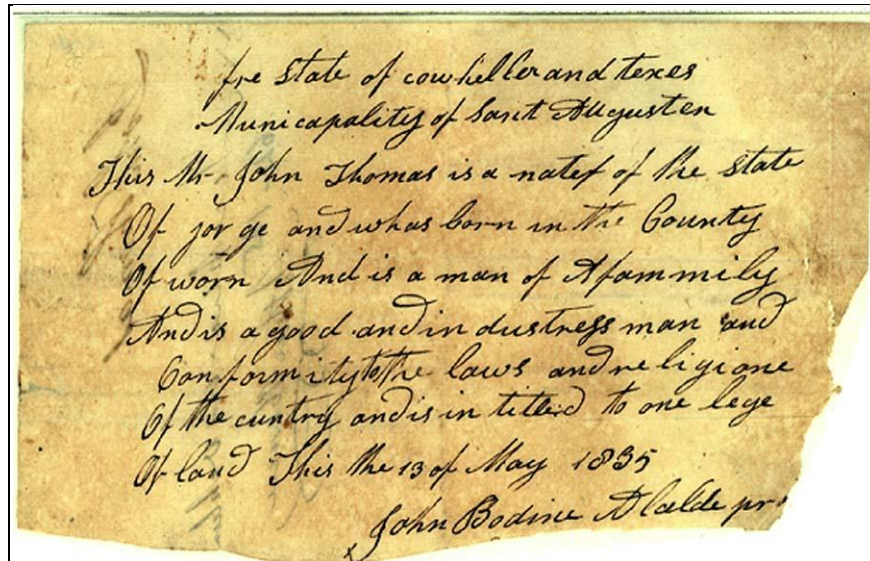 fre State of cowheller and texes
Municapality of Sant Augusten
This Mr John Thomas is a natef of the State
Of jor ge and whas born in the County
Of worn And is a man of A fammily
And is a good and in dustress man and
Conformity to the laws and religione
Of the cuntry and is in titled to one lege
Of land This the 13 of May 1835
John Bodine Alcalde pr